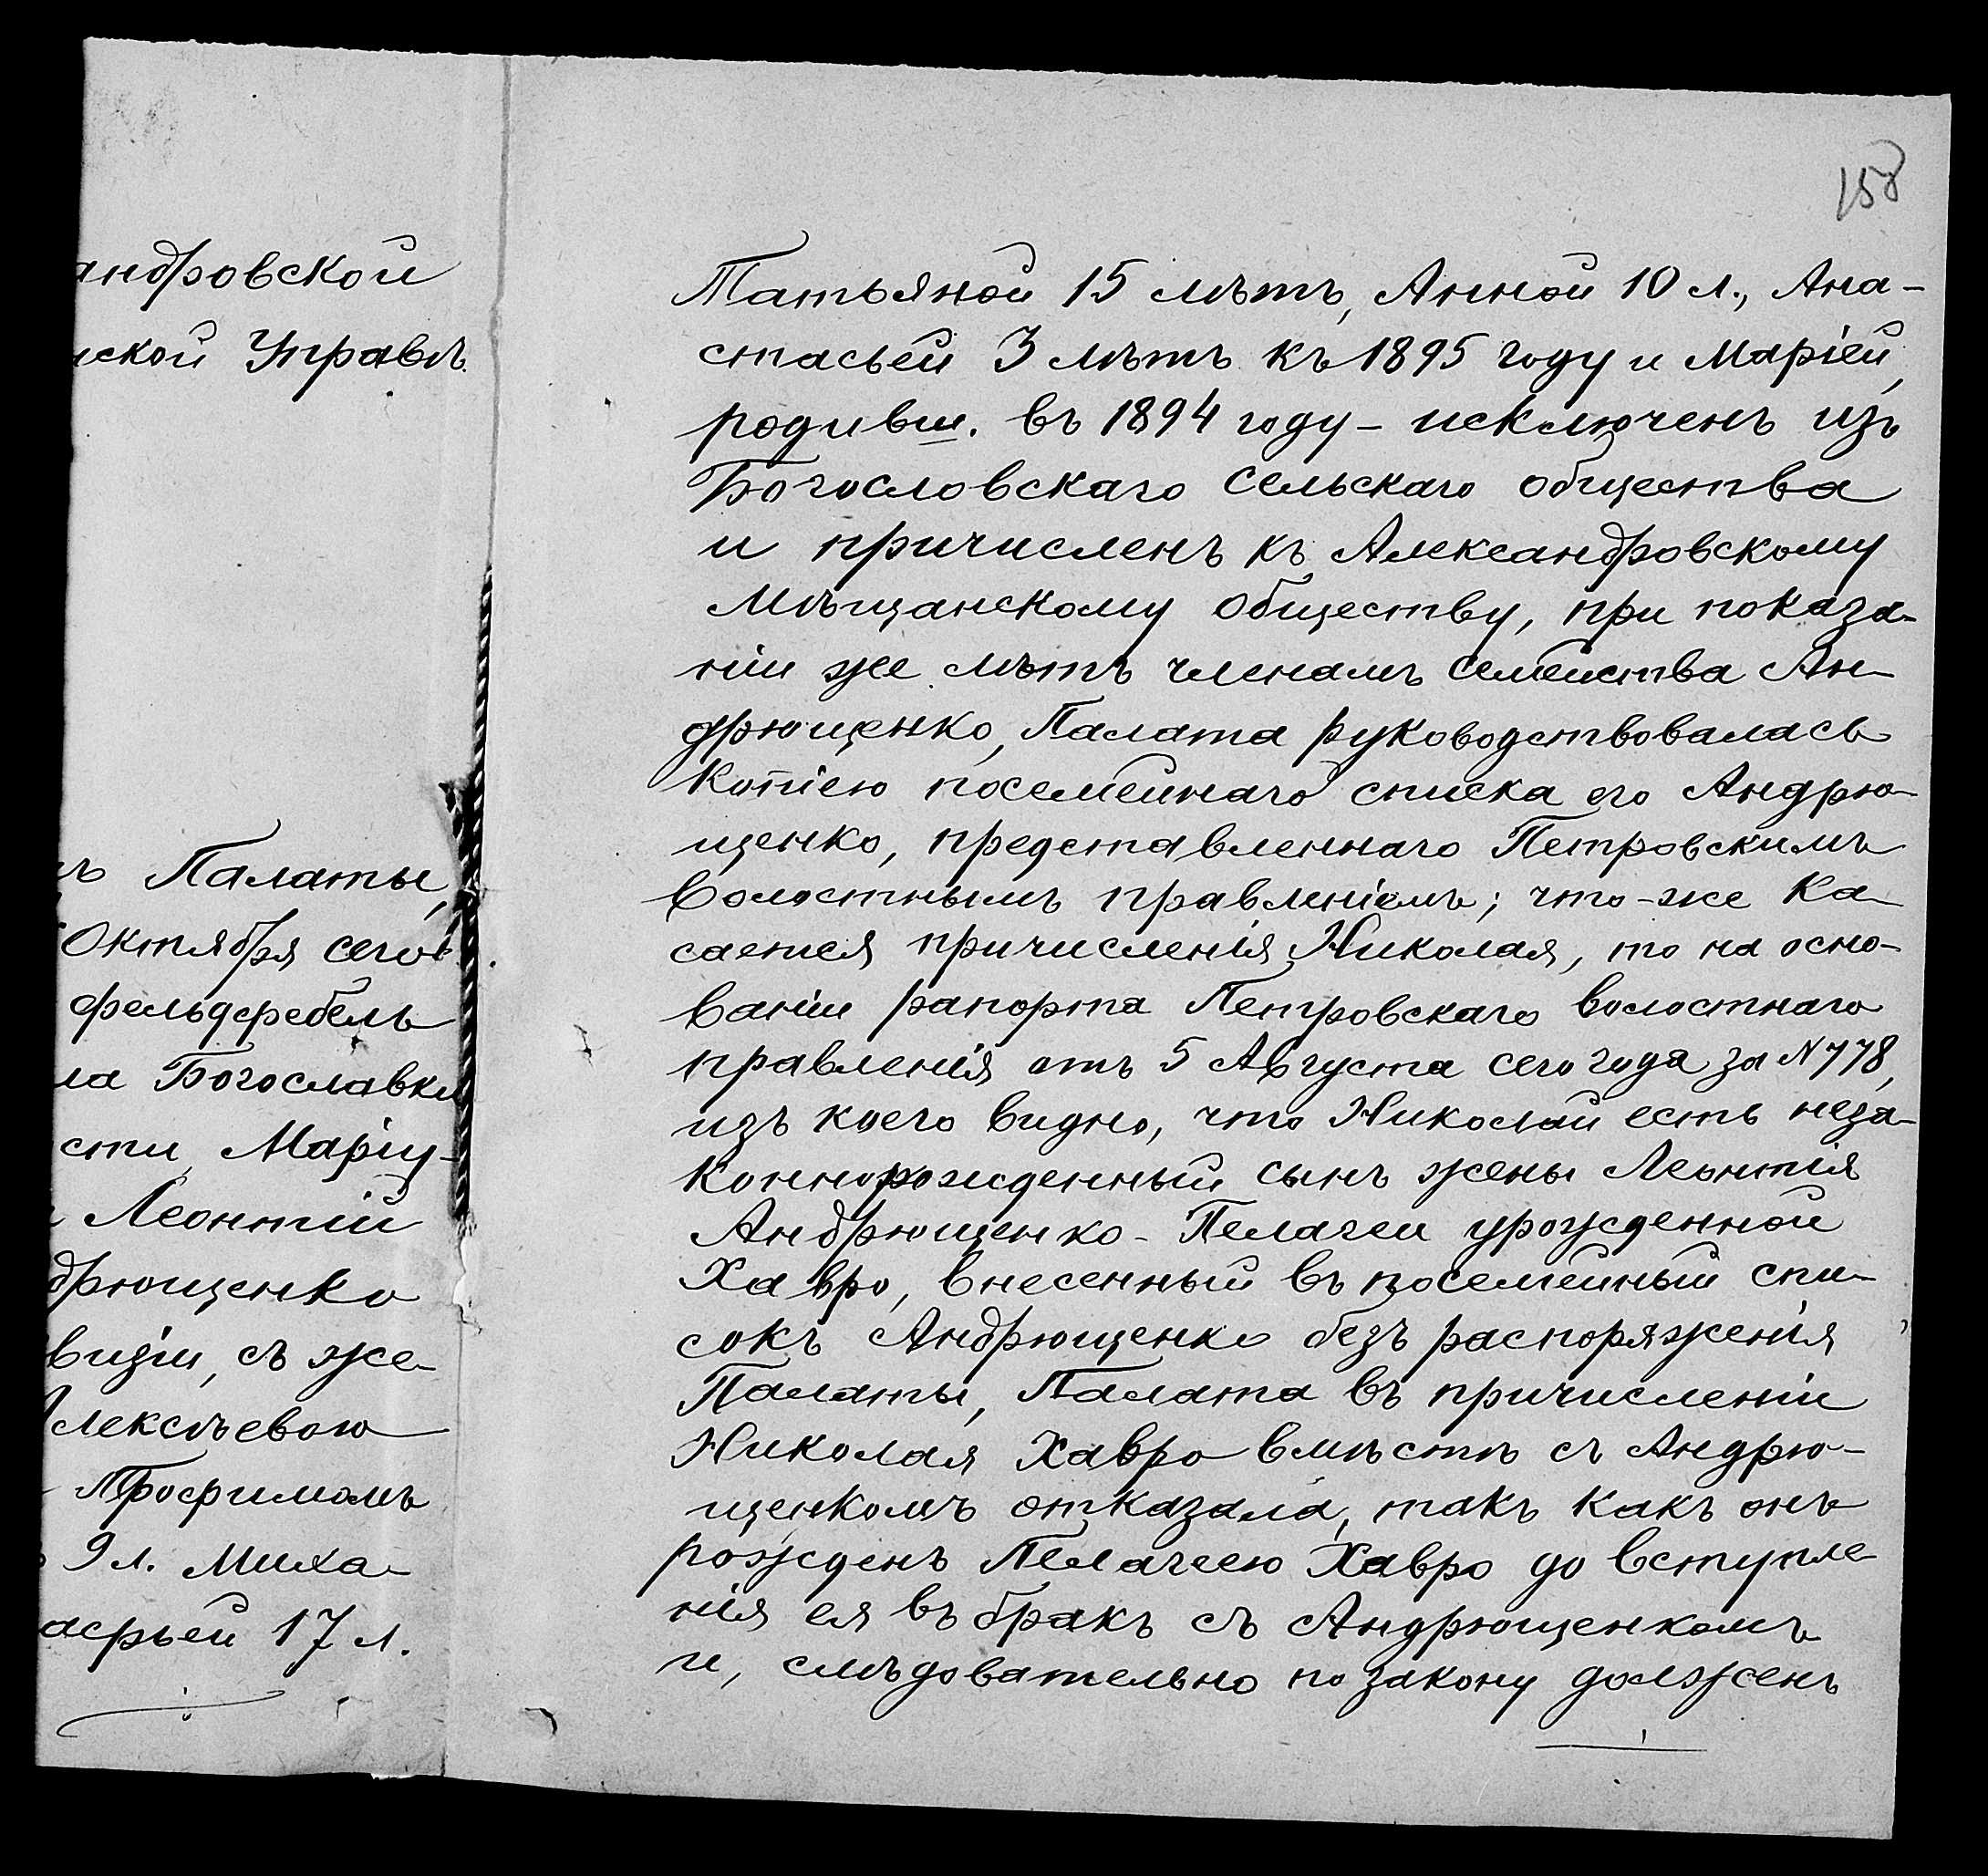 андровской
ской Управѣ.
ъ Палаты,
Октября сего
фельдфебель
ла Богославки
сти, Маріу-
Леонтій
дрющенко
визіи, съ же-
лексѣевою
Трофимомъ
9 л. Миха-
афьей 17 л.
158
Татьяной 15 лѣтъ, Анной 10 л., Ана-
стасьей 3 лѣтъ къ 1895 году и Маріей,
родивш. въ 1894 году - исключенъ изъ
Богословскаго сельскаго общества
и причисленъ къ Александровскому
Мѣщанскому обществу, при показа-
ніи же лѣтъ членамъ семейства Ан-
дрющенко, Палата руководствовалась
копіею посемейнаго списка его Андрю-
щенко, представленнаго Петровскимъ
волостнымъ правленіемъ; что-же ка-
сается причисленія Николая, то на осно-
ваніи рапорта Петровскаго волостнаго
правленія отъ 5 Августа сего года за N 778,
изъ коего видно, что Николай есть неза-
коннорожденный сынъ жены Леонтія
Андрющенко - Пелагеи урожденной
Хавро, внесенный въ посемейный спи-
сокъ Андрющенко безъ распоряженія
Палаты, Палата въ причисленіи
Николая Хавро вмѣстѣ съ Андрю-
щенкомъ отказала, такъ какъ онъ
рожденъ Пелагеею Хавро до вступле-
нія ея въ бракъ съ Андрющенкомъ
и, слѣдовательно по закону долженъ